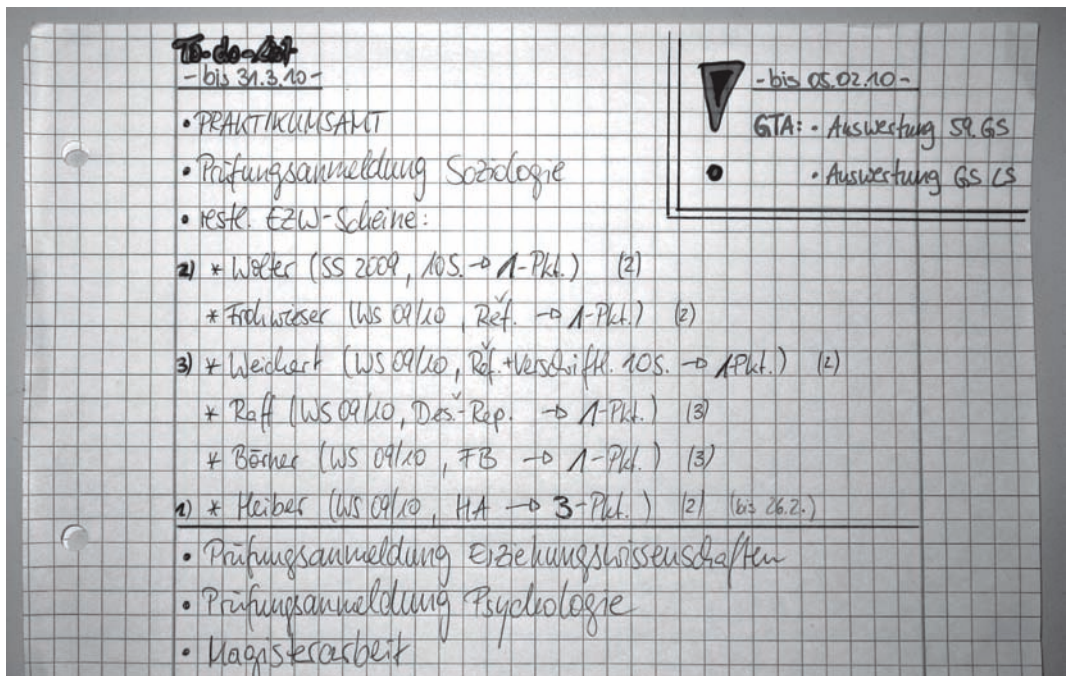 To-do-list
- bis 31.3.10 -
• PRAKTIKUMSAMT
• Prüfungsanmeldung Soziologie
• restl. EZW-Scheine:
2) * Wolter (SS 2009, 10S. → 1-Pkt.) (2)
* Frohwieser (WS 09/10, Ref. → 1-Pkt.) (2)
3) * Weichert (WS 09/10, Ref.+Verschriftl. 10S. → 1Pkt.) (2)
* Raff (WS 09/10, Des.-Rep. → 1-Pkt.) (3)
* Börner (WS 09/10, FB → 1-Pkt.) (3)
1) * Heiber (WS 09/10, HA → 3-Pkt.) (2) (bis 26.2.)
• Prüfungsanmeldung Erziehungswissenschaften
• Prüfungsanmeldung Psychologie
• Magisterarbeit
- bis 05.02.10 -
GTA: • Auswertung 59. GS
• Auswertung GS LS